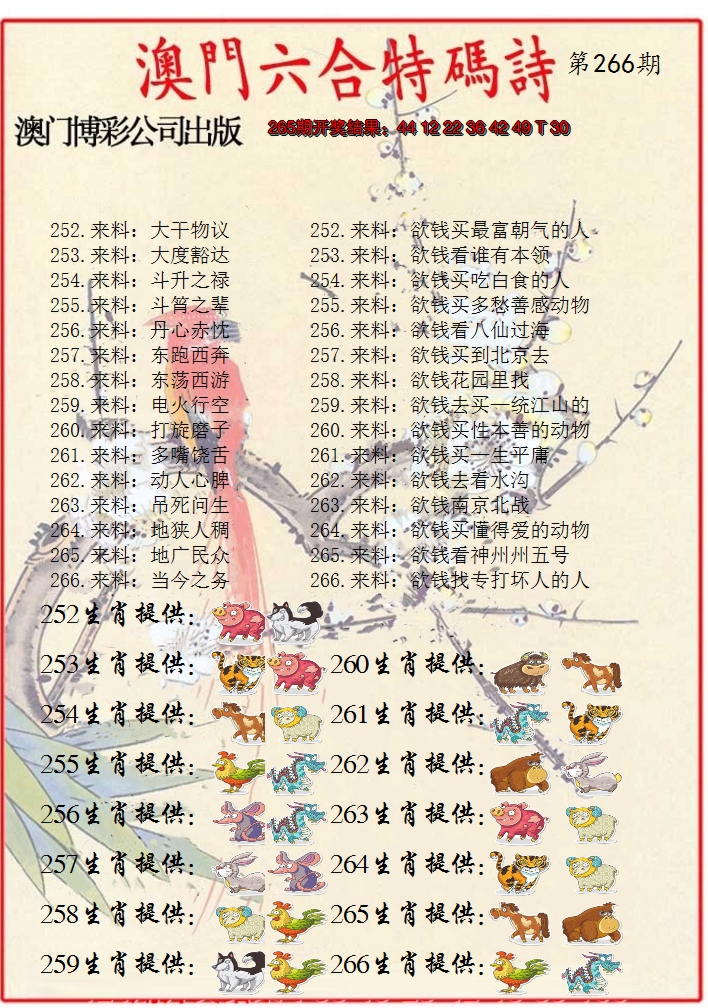 澳門六合特碼詩 第266期
澳门博彩公司出版 265期开奖结果：44 12 22 36 42 49 T 30
252.来料：大干物议 252.来料：欲钱买最富朝气的人
253.来料：大度豁达 253.来料：欲钱看谁有本领
254.来料：斗升之禄 254.来料：欲钱买吃白食的人
255.来料：斗筲之辈 255.来料：欲钱买多愁善感动物
256.来料：丹心赤忱 256.来料：欲钱看八仙过海
257.来料：东跑西奔 257.来料：欲钱买到北京去
258.来料：东荡西游 258.来料：欲钱花园里找
259.来料：电火行空 259.来料：欲钱去买一统江山的
260.来料：打旋磨子 260.来料：欲钱买性本善的动物
261.来料：多嘴饶舌 261.来料：欲钱买一生平庸
262.来料：动人心脾 262.来料：欲钱去看水沟
263.来料：吊死问生 263.来料：欲钱南京北战
264.来料：地狭人稠 264.来料：欲钱买懂得爱的动物
265.来料：地广民众 265.来料：欲钱看神州州五号
266.来料：当今之务 266.来料：欲钱找专打坏人的人
252生肖提供：
253生肖提供： 260生肖提供：
254生肖提供： 261生肖提供：
255生肖提供： 262生肖提供：
256生肖提供： 263生肖提供：
257生肖提供： 264生肖提供：
258生肖提供： 265生肖提供：
259生肖提供： 266生肖提供：